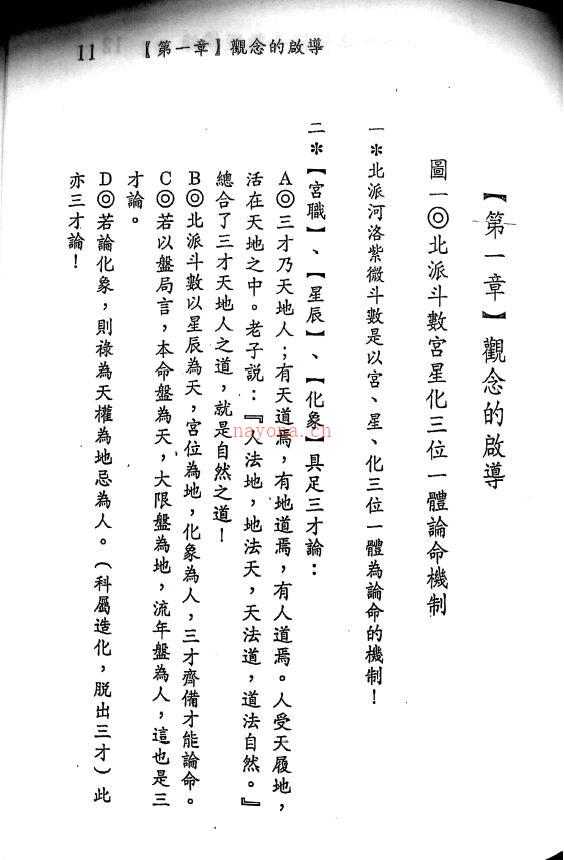 11 【第一章】觀念的啟導
【第一章】觀念的啟導
圖一◎北派斗數宮星化三位一體論命機制
一＊北派河洛紫微斗數是以宮、星、化三位一體為論命的機制！
二＊【宮職】、【星辰】、【化象】具足三才論：
A◎三才乃天地人；有天道焉，有地道焉，有人道焉。人受天履地，
活在天地之中。老子説：『人法地，地法天，天法道，道法自然。』
總合了三才天地人之道，就是自然之道！
B◎北派斗數以星辰為天，宮位為地，化象為人，三才齊備才能論命。
C◎若以盤局言，本命盤為天，大限盤為地，流年盤為人，這也是三
才論。
D◎若論化象，則祿為天權為地忌為人。（科屬造化，脫出三才）此
亦三才論！
nayona.cn